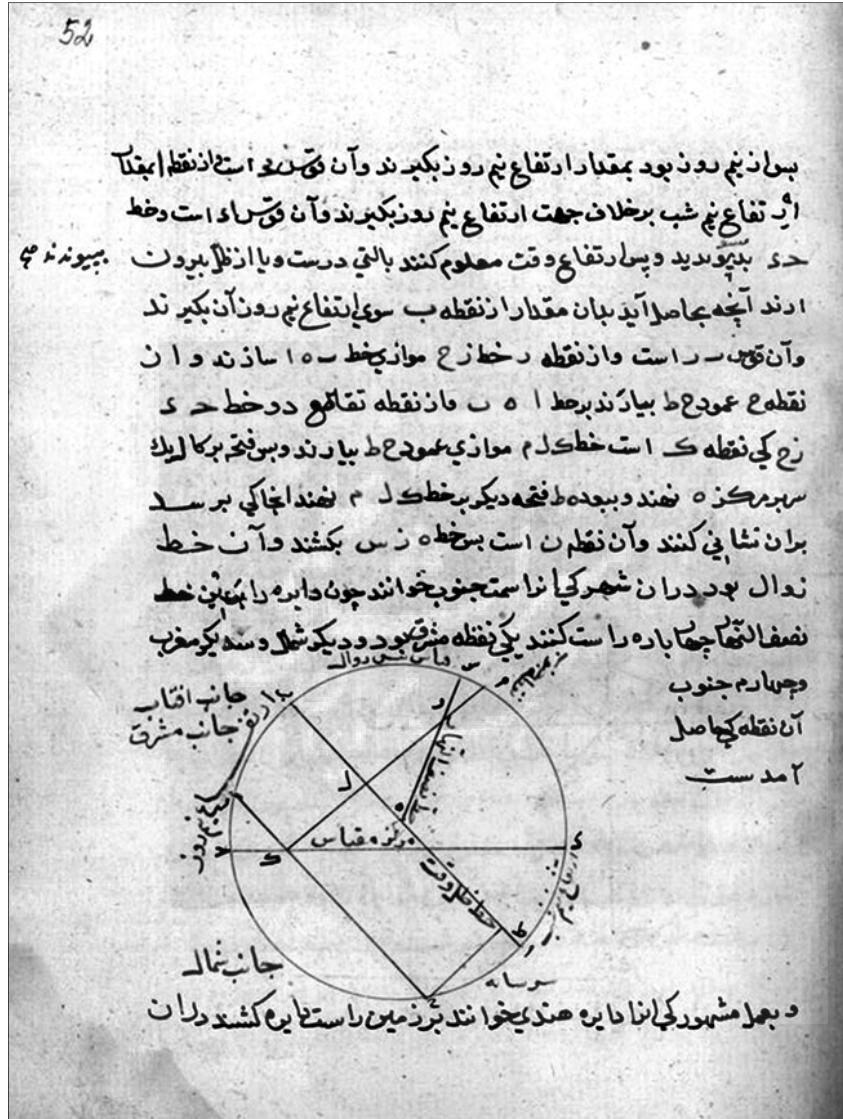 52
پس از نیم روز بود بمقدار ارتفاع نیم روز بکیرند وآن قوس است واز نقطه ا بمقدار
ارتفاع نیم شب برخلاف جهت ارتفاع نیم روز بکیرند وآن قوس اء است وخط
حء بپیوندید وپس ارتفاع وقت معلوم کنند بالتی درست ویا از ظل بیرون
بپیوندند
ارند آنچه بحاصل آید بدان مقدار از نقطه ب سوی ارتفاع نیم روز آن بکیرند
وآن قوس ٮر است واز نقطه ر خط زح موازی خط ٮ ه ا سازند وان
نقطه ح عمود ح ط بیارند بر خط ا ه ٮ واز نقطه تقاطع دو خط حء
زح کی نقطه ک است خط ک ل م موازی عمود ح ط بیارند وپس فتحه برکار یك
سر بر مرکز ه نهند وببعد ه ط فتحه دیکر بر خط ک ل م نهند انجا کی برسد
بران نشانی کنند وآن نقطه ن است پس خط ه ن س بکشند وآن خط
زوال بود دران شهر کی انرا سمت جنوب خوانند چون دایره را بدین خط
نصف النهار چهار پاره راست کنند یکی نقطه مشرق بود ودیکر شمال وسدیکر مغرب
وچهارم جنوب
آن نقطه کی حاصل
آمدست
جانب افتاب
جانب مشرق
س
م
ر
ل
ه
خط نصف النهار
ارتفاع نیم روز
ح
ک
مرکز ه مقیاس
ء
خط ظل وقت
ط
ا
سر سایه
ح
جانب شمال
وبعمل مشهور کی انرا دایره هندی خوانند بر زمین راست دایره کشند دران